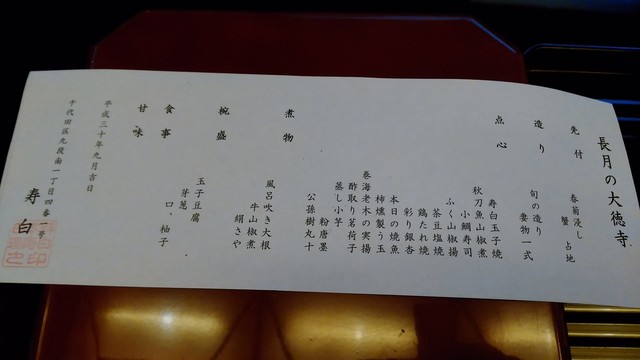 長月の大徳寺
先付
春菊浸し
蟹 占地
造り
旬の造り
妻物一式
点心
寿白玉子焼
秋刀魚山椒煮
小鯛寿司
ふく山椒揚
茶豆塩焼
鶏たれ焼
彩り銀杏
本日の焼魚
柿燻製う玉
巻海老木の実揚
酢取り茗荷子
蒸し小芋
粉唐墨
公孫樹丸十
煮物
風呂吹き大根
牛山椒煮
絹さや
椀盛
玉子豆腐
芽葱
口、柚子
食事
甘味
平成三十年九月吉日
千代田区九段南一丁目四番一号
寿白